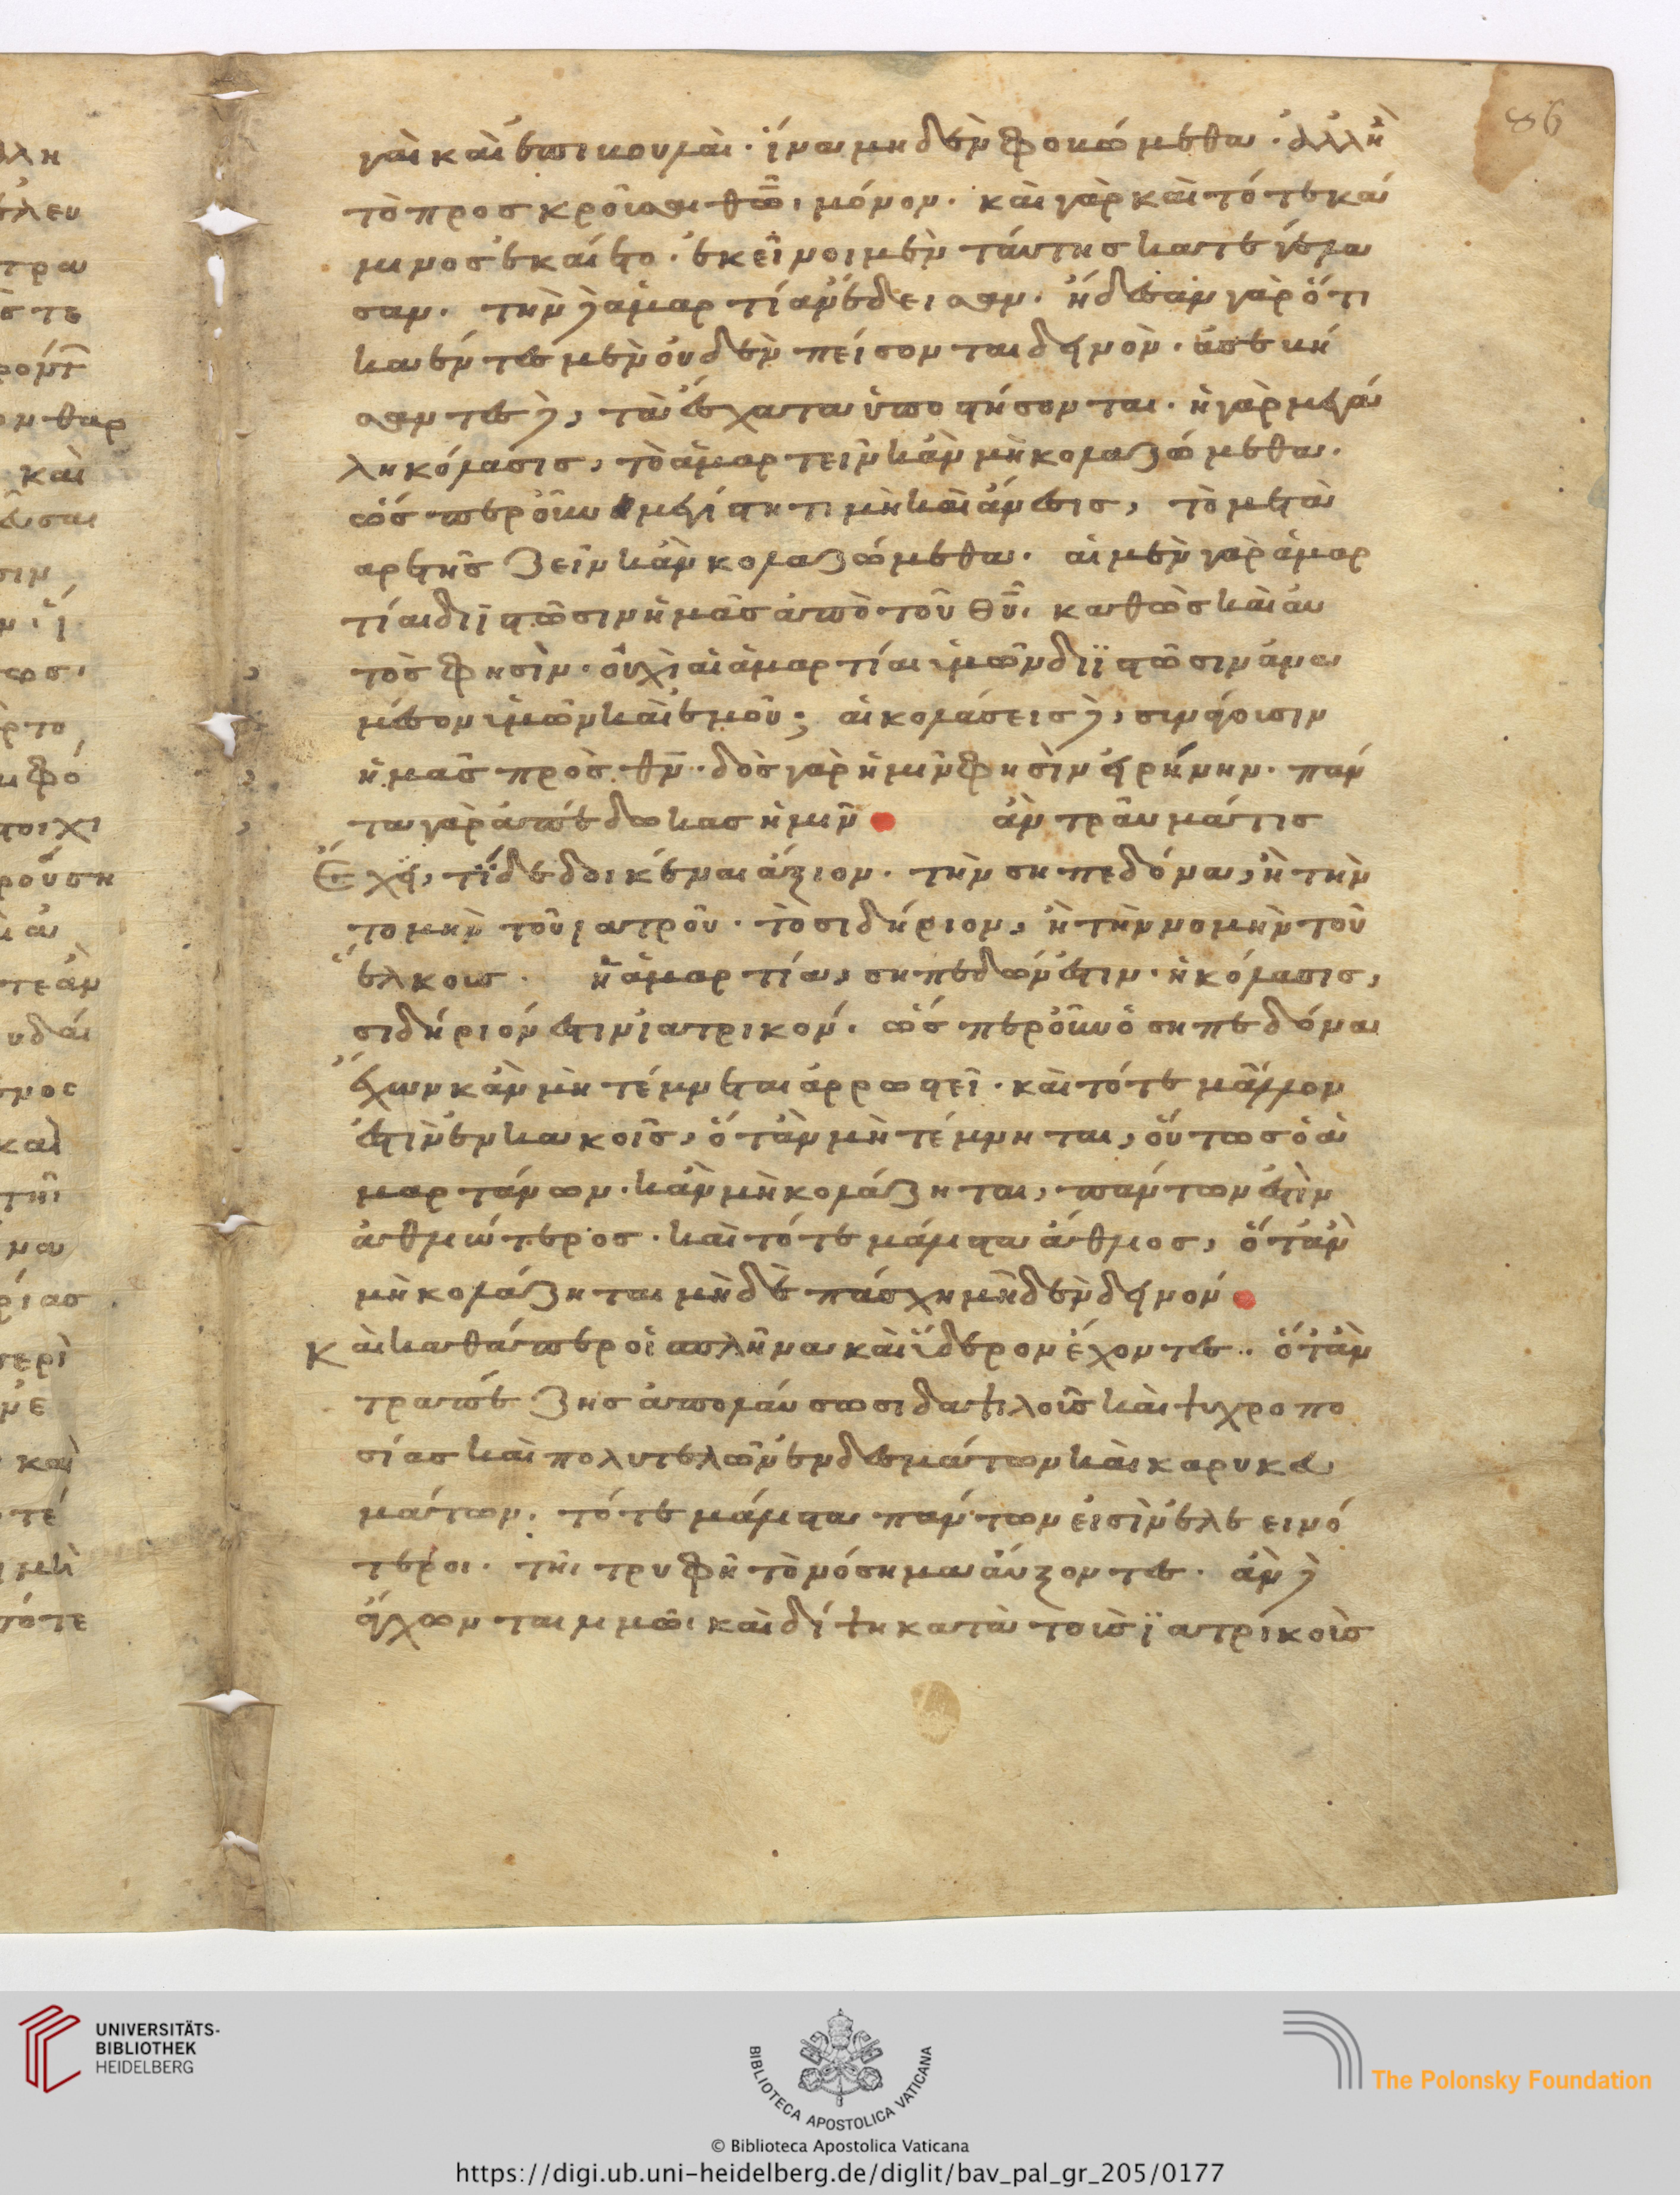 γαὶ καὶ ἐπιβουλαὶ· ἵνα μηδὲν φοβώμεθα· ἀλλ' ἢ
τὸ προσκροῦσαι θω̅ι μόνον· καὶ γὰρ καὶ τότε κά
μινος ἐκαίετο· ἐκεῖνοι μὲν ταύτης κατεγέλα
σαν· τὴν δὲ ἁμαρτίαν ἔδεισαν· ἤδεσαν γὰρ ὅτι
καέντες μὲν οὐδὲν πείσονται δεινὸν· ἀσεβή
σαντες δὲ, τὰ ἔσχατα ὑποστήσονται· ἡ γὰρ μεγά
λη κόλασις, τὸ ἁμαρτεῖν κἂν μὴ κολαζώμεθα·
ὥσπερ οὖν μεγίστη τιμὴ καὶ ἄνεσις, τὸ μετὰ
ἀρετῆς ζεῖν κἂν κολαζώμεθα· αἱ μὲν γὰρ ἁμαρ
τίαι διϊστῶσιν ἡμᾶς ἀπὸ τοῦ θυ̅· καθὼς καὶ αὐ
τὸς φησὶν· οὐχὶ αἱ ἁμαρτίαι ὑμῶν διϊστῶσιν ἀνα
μέσον ὑμῶν καὶ ἐμοῦ; αἱ κολάσεις δὲ, συνάγουσιν
ἡμᾶς πρὸς θν̅· δὸς γὰρ ἡμῖν φησὶν εἰρήνην· πάν
τα γὰρ ἀπέδωκας ἡμῖν ἂν τραῦμά τις
Ἔχει, τί δεδοικέναι ἄξιον· τὴν σηπεδόνα, ἢ τὴν
τομὴν τοῦ ἰατροῦ· τὸ σιδήριον, ἢ τὴν νομὴν τοῦ
ἕλκους· ἡ ἁμαρτία, σηπεδών ἐστιν· ἡ κόλασις,
σιδήριόν ἐστιν ἰατρικόν· ὥσπερ οὖν ὁ σηπεδόνα
ἔχων κἂν μὴ τέμνεται ἀρρωστεῖ· καὶ τότε μᾶλλον
ἐστὶν ἐν κακοῖς, ὅταν μὴ τέμνηται, οὕτως ὁ ἁ
μαρτάνων· κἂν μὴ κολάζηται, πάντων ἐστὶν
ἀθλιώτερος· καὶ τότε μάλιστα ἄθλιος, ὅταν
μὴ κολάζηται μὴδὲ πάσχη μὴδὲν δεινόν
Καὶ καθάπερ οἱ σπλῆνα καὶ ὕδερον ἔχοντες· ὅταν
τραπέζης ἀπολαύσωσι δαψιλοῦς καὶ ψυχροπο
σίας καὶ πολυτελῶν ἐνδεσμάτων καὶ καρυκευ
μάτων, τότε μάλιστα πάντων εἰσὶν ἐλεεινό
τεροι· τῆι τρυφῆ τὸ νόσημα αὔξοντες· ἂν δὲ
ἄγχωνται λιμῶι καὶ δίψη κατὰ τοὺς ἰατρικοὺς
86
UNIVERSITÄTS-
BIBLIOTHEK
HEIDELBERG
BIBLIOTECA APOSTOLICA VATICANA
The Polonsky Foundation
© Biblioteca Apostolica Vaticana
https://digi.ub.uni-heidelberg.de/diglit/bav_pal_gr_205/0177